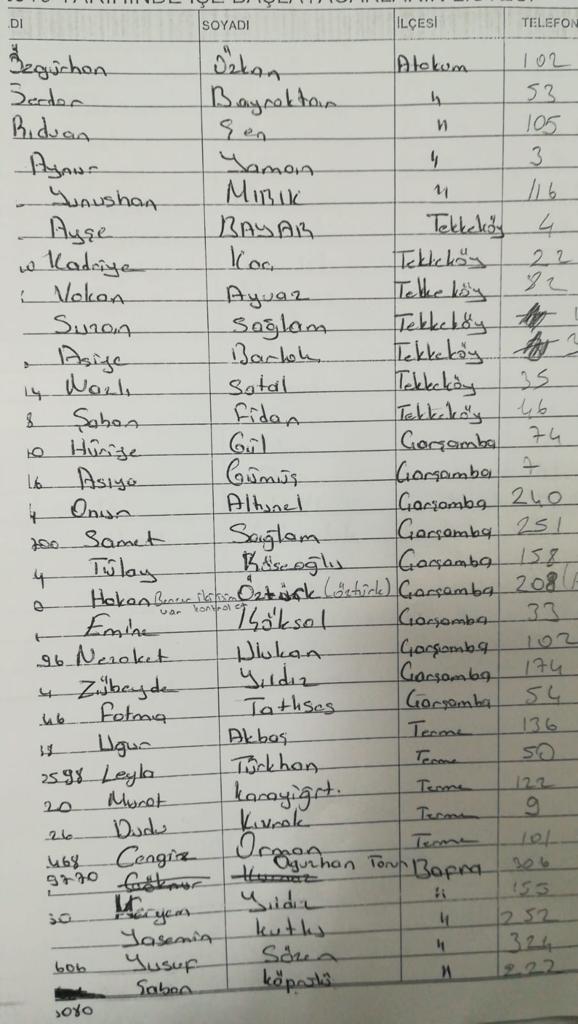 DI SOYADI İLÇESİ TELEFON
Özgürhan Özkan Atakum 102
Serdar Bayraktar " 53
Rıdvan Şen " 105
Aynur Yaman " 3
Yunushan MIBIK " 116
Ayşe BAYAR Tekkeköy 4
Kadriye Koç Tekkeköy 22
Volkan Ayvaz Tekkeköy 82
Suzan Sağlam Tekkeköy
Asiye Tekkeköy
14 Nazlı Tekkeköy 35
8 Şaban Fidan Tekkeköy 46
10 Hüriye Gül Çarşamba 74
16 Asiye Gümüş Çarşamba 7
4 Onur Altunel Çarşamba 240
200 Samet Sağlam Çarşamba 251
4 Tülay Köseoğlu Çarşamba 158
Hakan Öztürk (öztürk) Çarşamba 208
var kontrol et
Emine Göksal Çarşamba 33
96 Nezaket Ulukan Çarşamba 102
4 Zübeyde Yıldız Çarşamba 174
46 Fatma Tatlıses Çarşamba 54
18 Uğur Akbaş Terme 136
2598 Leyla Türkhan Terme 50
20 Murat Karayiğit. Terme 122
26 Dudu Kıvrak Terme 9
468 Cengiz Orman Terme 101
9770 Oğuzhan Bafra 306
30 Meryem Yıldız " 155
Yasemin Kutlu " 252
606 Yusuf Sözen " 324
Şaban " 222
3080